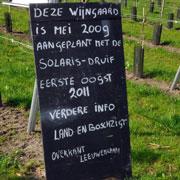 DEZE WIJNGAARD
IS MEI 2009
AANGEPLANT MET DE
SOLARIS-DRUIF
EERSTE OOGST
2011
VERDERE INFO
LAND EN BOSCHZIGT
OVERKANT LEEUWENLAAN